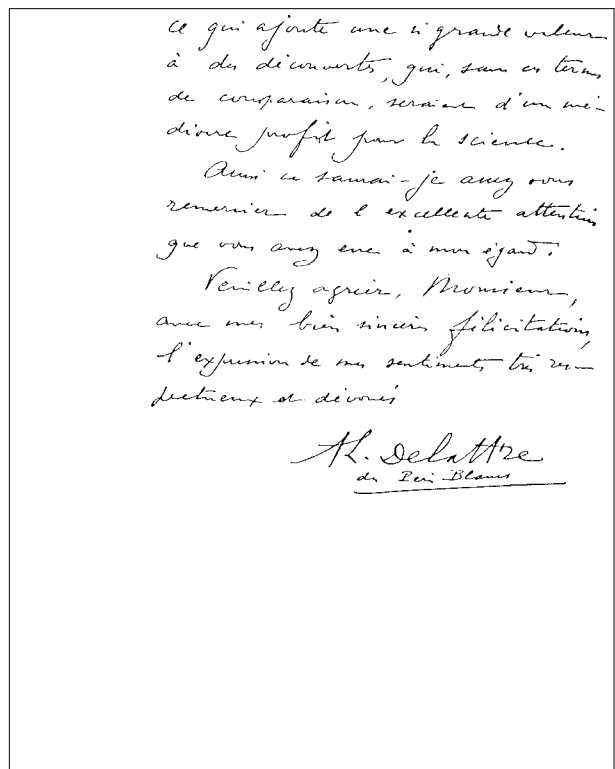 ce qui ajoute une si grande valeur
à des découvertes, qui, sans ces termes
de comparaison, seraient d'un mé-
diocre profit pour la science.
Aussi ne saurai-je assez vous
remercier de l'excellente attention
que vous avez eue à mon égard.
Veuillez agréer, Monsieur,
avec mes bien sincères félicitations,
l'expression de mes sentiments très res-
pectueux et dévoués
AL. Delattre
des Pères Blancs